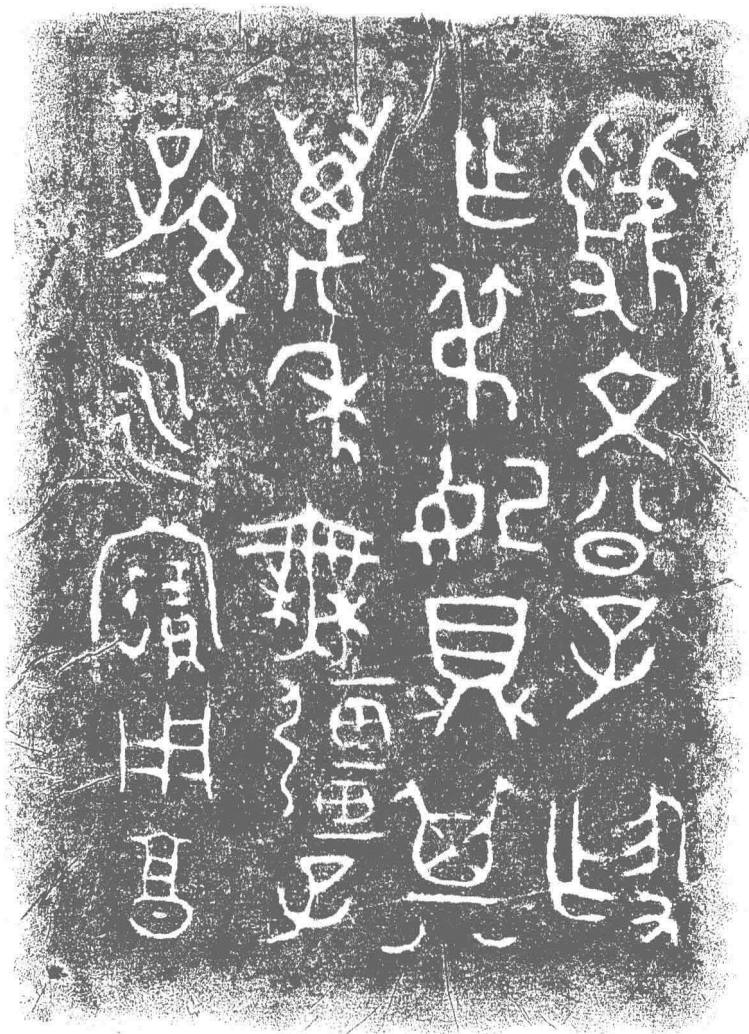 虢文公子
乍弔妃鼎其
萬年無疆子
孫=永寶用享